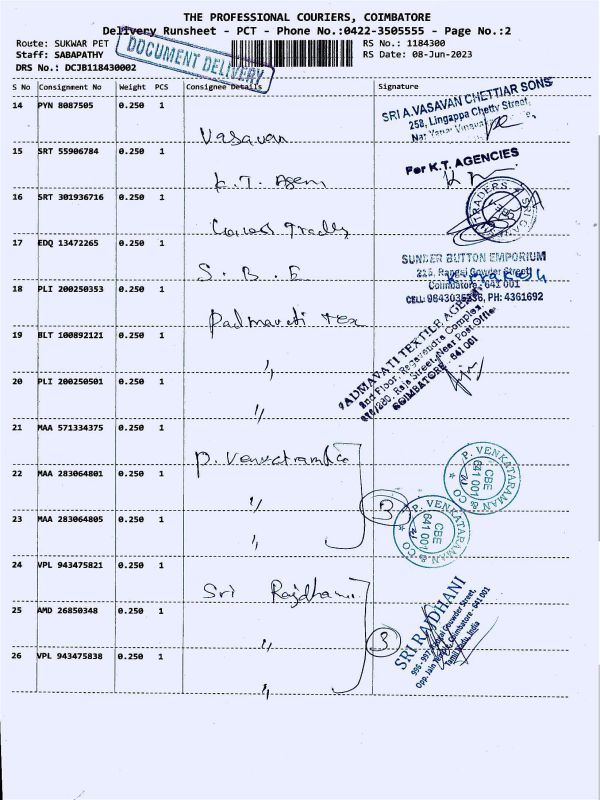 THE PROFESSIONAL COURIERS, COIMBATORE
Delivery Runsheet - PCT - Phone No.:0422-3505555 - Page No.:2
Route: SUKWAR PET
Staff: SABAPATHY
DRS No.: DCJB118430002
DOCUMENT DELIVERY
RS No.: 1184300
RS Date: 08-Jun-2023
S No Consignment No Weight PCS Consignee Details Signature
14 PYN 8087505 0.250 1
Vasavan
SRI A.VASAVAN CHETTIAR SONS
258, Lingappa Chetty Street,
15 SRT 55906784 0.250 1
K.T. Agen
For K.T. AGENCIES
16 SRT 301936716 0.250 1
17 EDQ 13472265 0.250 1
S. B. E
SUNDER BUTTON EMPORIUM
Rangai Gowder Street
Coimbatore - 641 001
PH: 4361692
18 PLI 200250353 0.250 1
Padmavati Tex
PADMAVATI TEXTILE AGENCY
2nd Floor, Complex,
Raja Street, Near Post Office
COIMBATORE - 641 001
19 BLT 100892121 0.250 1
"
20 PLI 200250501 0.250 1
"
21 MAA 571334375 0.250 1
P. Venkatraman Co
P. VENKATARAMAN & CO
CBE
641 001
22 MAA 283064801 0.250 1
"
3
P. VENKATARAMAN & CO
CBE
641 001
23 MAA 283064805 0.250 1
"
24 VPL 943475821 0.250 1
Sri Rajdhani
SRI RAJDHANI
Gowder Street,
Coimbatore - 641 001
Tamil Nadu, India
25 AMD 26850348 0.250 1
"
3
26 VPL 943475838 0.250 1
"